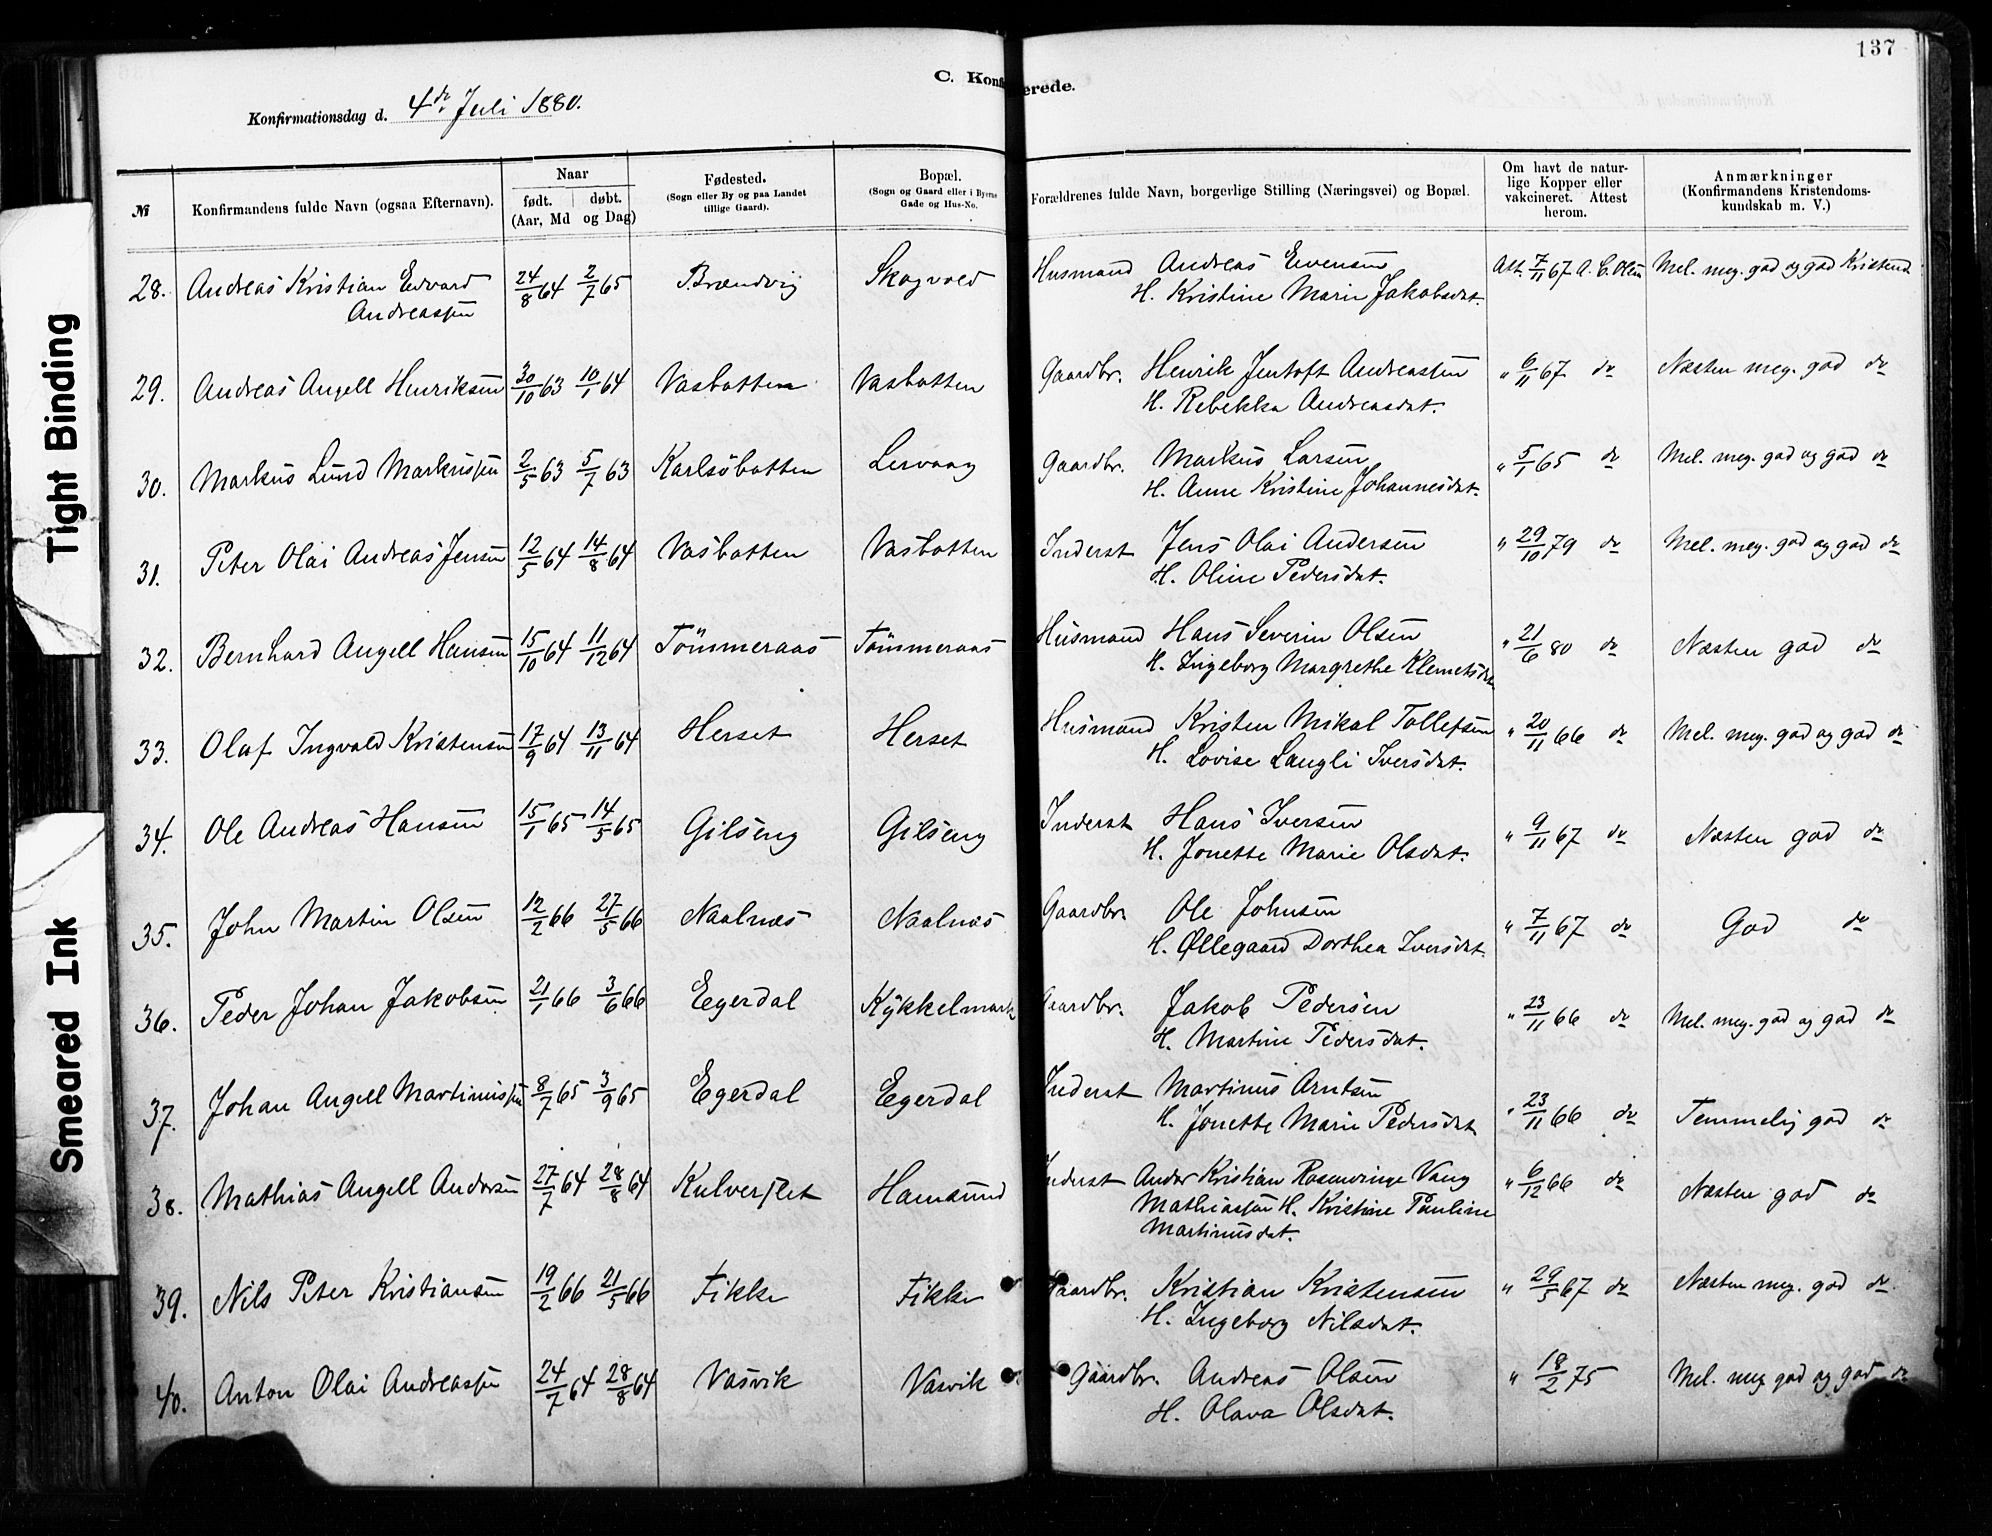 137
C. Konfirmerede.
Konfirmationsdag d. 4de Juli 1880.
№ | Konfirmandens fulde Navn (ogsaa Efternavn). | Naar født. døbt. (Aar, Md og Dag) | Fødested. (Sogn eller By og paa Landet tillige Gaard). | Bopæl. (Sogn og Gaard eller i Byerne Gade og Hus-No. | Forældrenes fulde Navn, borgerlige Stilling (Næringsvei) og Bopæl. | Om havt de naturlige Kopper eller vakcineret. Attest herom. | Anmærkninger (Konfirmandens Kristendomskundskab m. V.)
28. Andreas Kristian Edvard Andreassen | 24/8 64 | 2/7 65 | Brændvig | Skogvold | Husmand Andreas Evensen
H. Kristine Marie Jakobsdat. | Att. 7/11 67 A. C. Olsen | Mel. meg. god og god Kristend.
29. Andreas Angell Henriksen | 30/10 63 | 10/1 64 | Vasbotten | Vasbotten | Gaardbr. Henrik Jentoft Andreassen
H. Rebekka Andreasdat. | " 6/11 67 do | Næsten meg. god do
30. Markus Lund Markussen | 2/5 63 | 5/7 63 | Karlsöbotten | Lervaag | Gaardbr. Markus Larsen
H. Anne Kristine Johannesdat. | " 5/1 65 do | Mel. meg. god og god do
31. Peter Olai Andreas Jensen | 12/5 64 | 14/8 64 | Vasbotten | Vasbotten | Inderst Jens Olai Andersen
H. Oline Pedersdat. | " 29/10 79 do | Mel. meg. god og god do
32. Bernhard Angell Hansen | 15/10 64 | 11/12 64 | Tömmeraas | Tömmeraas | Husmand Hans Severin Olsen
H. Ingeborg Margrethe Klemetsdat | " 21/6 80 do | Næsten god do
33. Olaf Ingvald Kristensen | 17/9 64 | 13/11 64 | Herset | Herset | Husmand Kristen Mikal Tollefsen
H. Lovise Langli Iversdat. | " 20/11 66 do | Mel. meg. god og god do
34. Ole Andreas Hansen | 15/1 65 | 14/5 65 | Gilseng | Gilseng | Inderst Hans Iversen
H. Jonette Marie Olsdat. | " 9/11 67 do | Næsten god do
35. John Martin Olsen | 12/2 66 | 27/5 66 | Naalnæs | Naalnæs | Gaardbr. Ole Johnsen
H. Øllegaard Dorthea Iversdat. | " 7/11 67 do | God do
36. Peder Johan Jakobsen | 21/1 66 | 3/6 66 | Egerdal | Kykkelmark | Gaardbr. Jakob Pedersen
H. Martine Pedersdat. | " 23/11 66 do | Mel. meg. god og god do
37. Johan Angell Martinussen | 8/7 65 | 3/9 65 | Egerdal | Egerdal | Inderst Martinus Arntsen
H. Jonette Marie Pedersdat | " 23/11 66 do | Temmelig god do
38. Mathias Angell Andersen | 27/7 64 | 28/8 64 | Kulverflet | Hamsund | Inderst Anders Kristian Rosenvinge Vang
Mathiassen H. Kristine Pauline
Martinusdat. | " 6/12 66 do | Næsten god do
39. Nils Peter Kristiansen | 19/2 66 | 21/5 66 | Fikke | Fikke | Gaardbr. Kristian Kristensen
H. Ingeborg Nilsdat. | " 29/5 67 do | Næsten meg. god do
40. Anton Olai Andreassen | 24/7 64 | 28/8 64 | Vasvik | Vasvik | Gaardbr. Andreas Olsen
H. Olava Olsdat. | " 18/2 75 | Mel. meg god og god do
Tight Binding
Smeared Ink